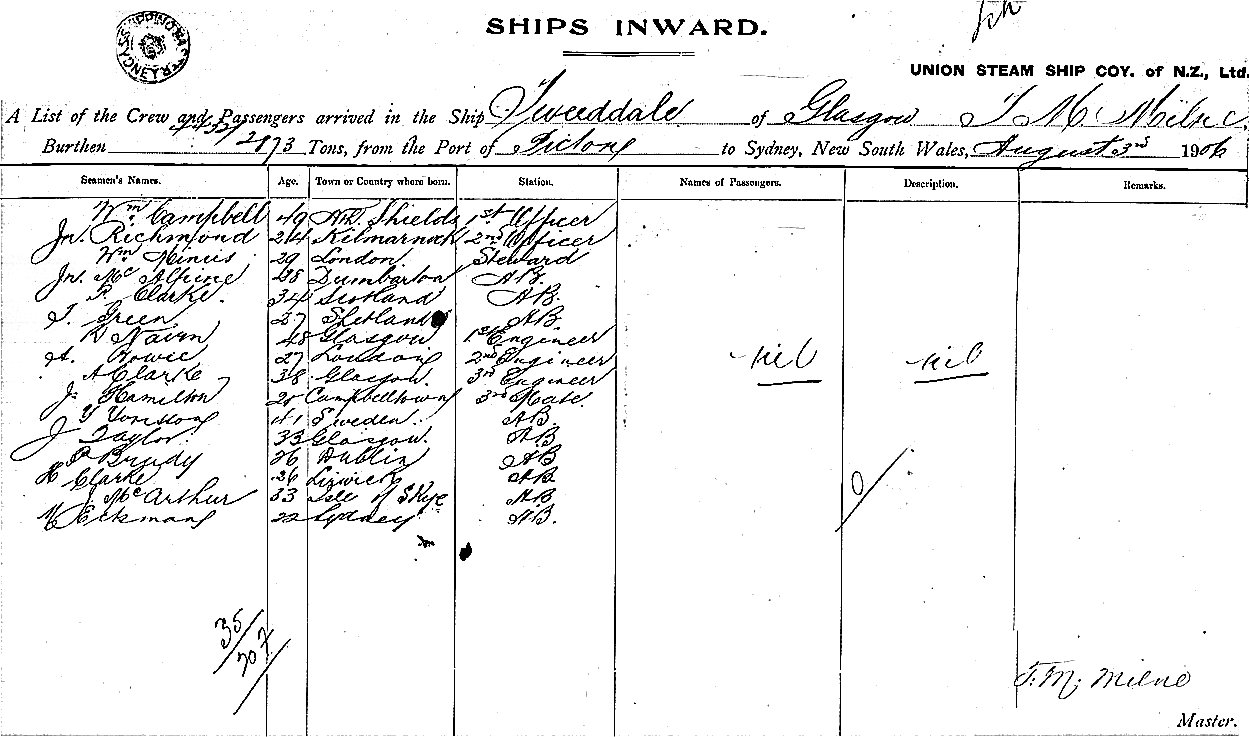 SHIPPING MASTER SYDNEY
SHIPS INWARD.
UNION STEAM SHIP COY. of N.Z., Ltd.
A List of the Crew and Passengers arrived in the Ship Tweeddale of Glasgow T. M. Milne
Burthen Tons, from the Port of Picton to Sydney, New South Wales, August 3rd 1906
Seamen's Names. Age. Town or Country where born. Station. Names of Passengers. Description. Remarks.
Wm Campbell 49 Nth. Shields 1st Officer
Jn. Richmond 24 Kilmarnock 2nd Officer
Wm 29 London Steward
Jn. McAlpine 48 Dumbarton A.B.
P. Clarke. 34 Scotland A.B.
T. Green 27 Shetland A.B.
D Naven 48 Glasgow 1st Engineer
A. Bowie 27 London 2nd Engineer
A Clarke 38 Glasgow. 3rd Engineer
nil nil
J. Hamilton 20 Campbeltown 3rd Mate.
41 Sweden. A.B.
J Taylor. 33 Glasgow. A.B
P Brady 36 Dublin A.B
H Clarke 26 A.B
J McArthur 33 Isle of Skye A.B.
Eckman 22 Sydney A.B.
35/707
T. M. Milne
Master.